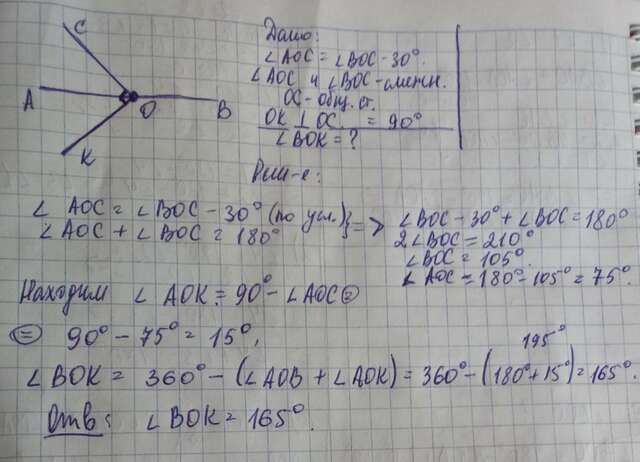 C
A
O
B
K
Дано:
∠AOC = ∠BOC - 30°.
∠AOC и ∠BOC - смежн.
OC - общ. ст.
OK ⊥ OC. = 90°
∠BOK = ?
Реш-е:
∠ AOC = ∠BOC - 30° (по усл.) } => ∠BOC - 30° + ∠BOC = 180°
∠AOC + ∠BOC = 180°
2∠BOC = 210°
∠BOC = 105°.
∠AOC = 180° - 105° = 75°.
Находим ∠AOK = 90° - ∠AOC =
= 90° - 75° = 15°,
195°
∠BOK = 360° - (∠AOB + ∠AOK) = 360° - (180° + 15°) = 165°.
Отв: ∠BOK = 165°.